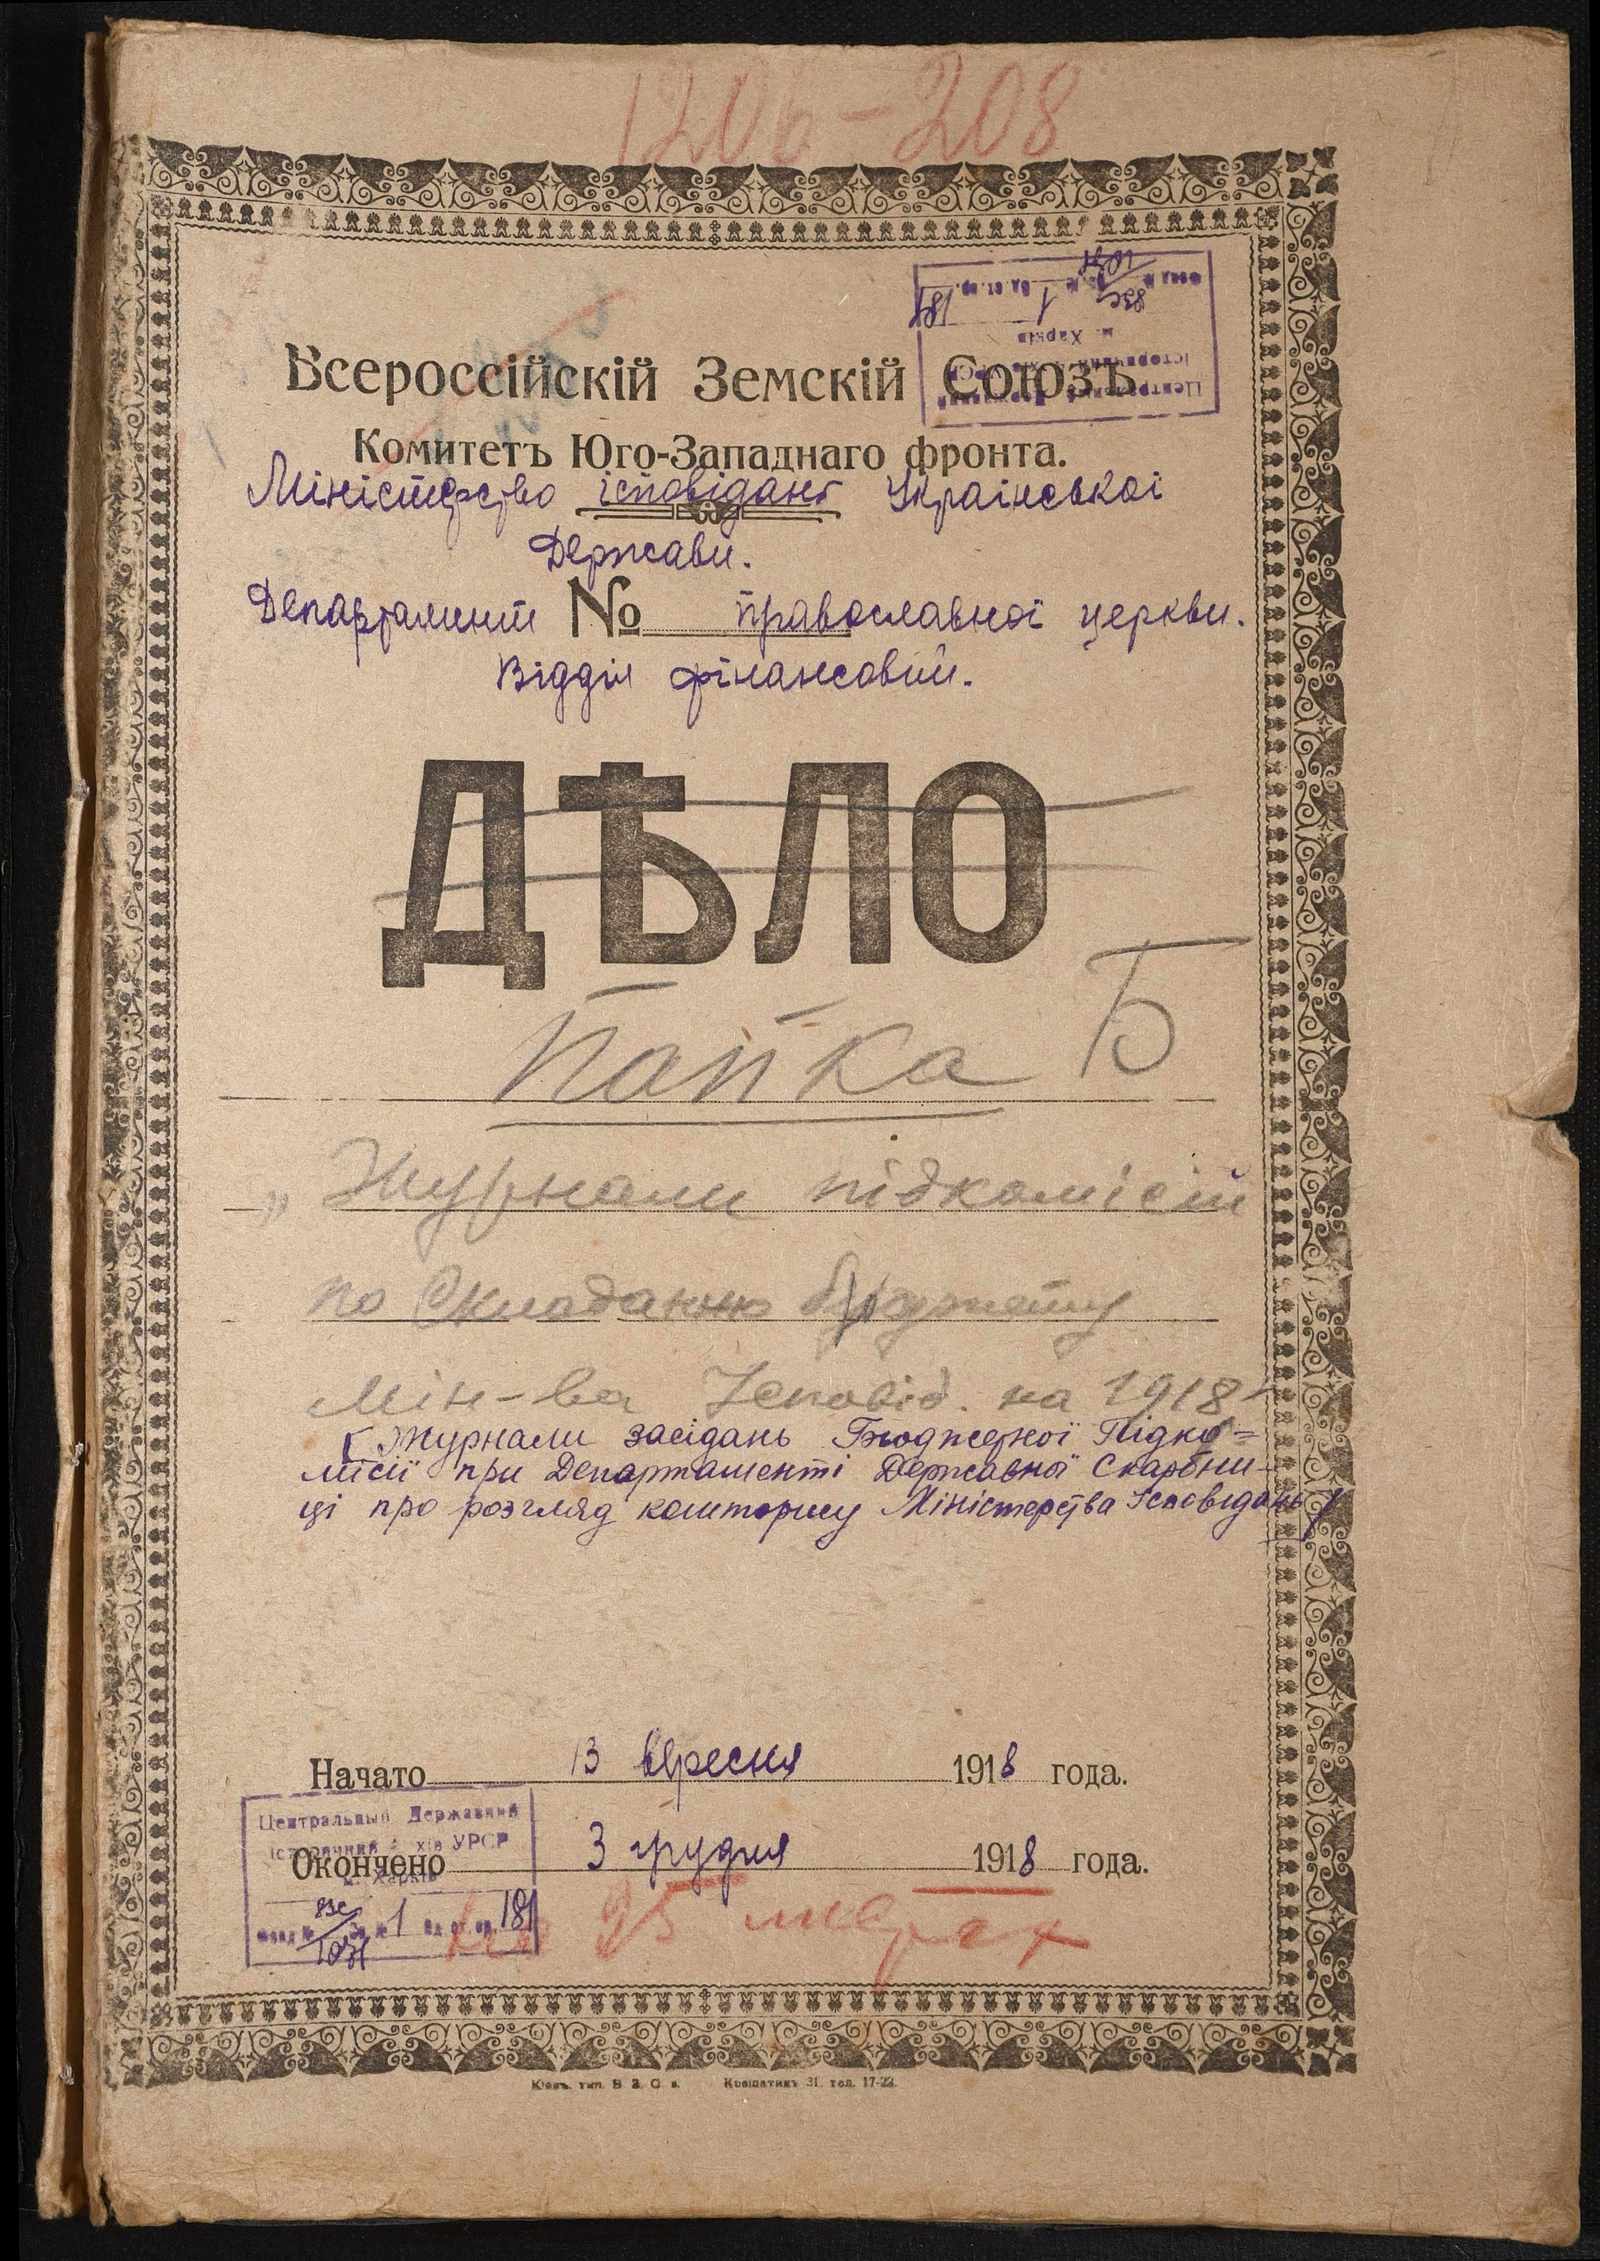 1206-208
Всероссійскій Земскій Союзъ
Комитетъ Юго-Западнаго фронта.
Міністерство ісповідань Украінськоі
Держави.
Департамент № православноі церкви.
Відділ фінансовий.
ДѢЛО
Папка Б
„ Журнали підкомісій
по складанню бюджету
Мін-ва Ісповід. на 1918
[Журнали засідань Бюджетної Підко=
місії при Департаменті Державної Скарбни-
ці про розгляд кошторису Міністерства Ісповідань]
Начато 13 вересня 1918 года.
Окончено 3 грудня 1918 года.
Центральный Державний
Історичний архів УРСР
м. Харків
Фонд № 1071 Оп. № 1 Од. зб. 181
На 25 листах
Кіевъ, тип. В. З. С. Крещатикъ 31, тел. 17-22.